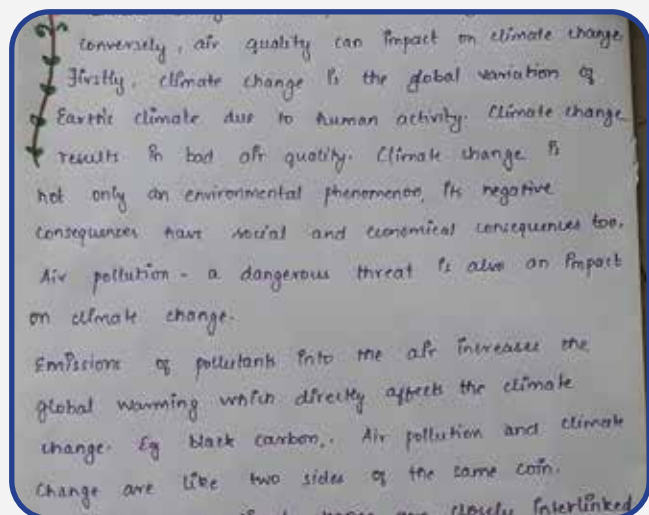 conversely, air quality can impact on climate change
Firstly, climate change is the global variation of
Earth's climate due to human activity. Climate change
results in bad air quality. Climate change is
not only an environmental phenomenon, its negative
consequences have social and economical consequences too.
Air pollution - a dangerous threat is also an impact
on climate change.
Emissions of pollutants into the air increases the
global warming which directly affects the climate
change. Eg black carbon,. Air pollution and climate
change are like two sides of the same coin.
are closely interlinked